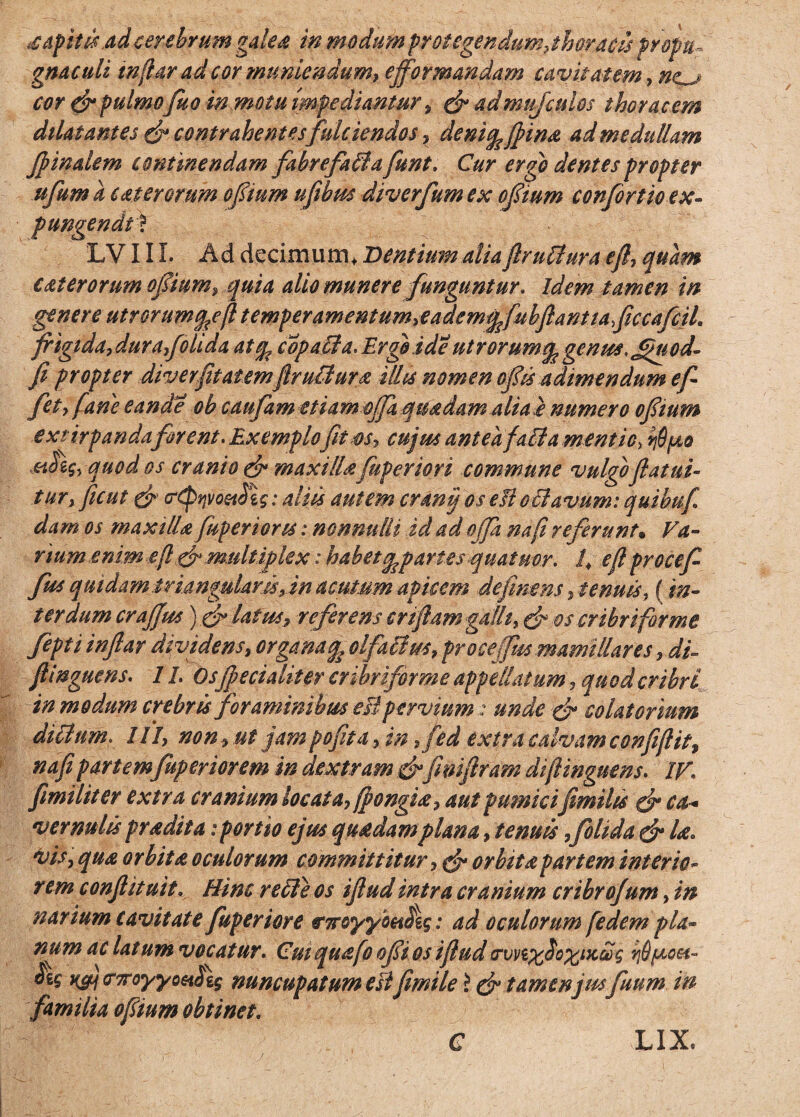 capitis ad cerebrum galeæ in modum protegendum, thoracis propu-
gnaculi instar ad cor muniendum, efformandam cavitatem, ne
cor & pulmo suo in motu impediantur, & ad musculos thoracem
dilatantes & contrahentes fulciendos, deniq; spinæ ad medullam
spinalem continendam fabrefacta sunt. Cur ergò dentes propter
usum à cæterorum ossium usibus diversum ex ossium consortio ex-
pungendi?
LVIII. Ad decimum. Dentium alia structura est, quàm
cæterorum ossium, quia alio munere funguntur. Idem tamen in
genere utrorumq; est temperamentum, eademq; substantia, sicca scil.
frigida, dura, solida atq; cōpacta. Ergò idē utrorumq; genus. Quod-
si propter diversitatem structuræ illis nomen ossis adimendum es-
set, sanè eandē ob causam etiam ossa quædam alia è numero ossium
extirpanda forent. Exemplo sit os, cujus anteà facta mentio, ἠθμο
ειδὲς, quod os cranio & maxillæ superiori commune vulgò statui-
tur, sicut & σφηνοειδὲς: aliis autem cranij os est octavum: quibus-
dam os maxillæ superioris: nonnulli id ad ossa nasi referunt. Va-
rium enim est & multiplex: habetq; partes quatuor. I. est proces-
sus quidam triangularis, in acutum apicem desinens, tenuis, (in-
terdum crassus) & latus, referens cristam galli, & os cribriforme
septi instar dividens, organaq; olfactus, processus mamillares, di-
stinguens. II. Os specialiter cribriforme appellatum, quod cribri
in modum crebris foraminibus est pervium: unde & colatorium
dictum. III, non, ut jam posita, in, sed extra calvam consistit,
nasi partem superiorem in dextram & sinistram distinguens. IV.
similiter extra cranium locata, spongiæ, aut pumici similis & ca-
vernulis prædita: portio ejus quædam plana, tenuis, solida & læ-
vis, qua orbitæ oculorum committitur, & orbitæ partem interio-
rem constituit. Hinc rectè os istud intra cranium cribrosum, in
narium cavitate superiore σπογγοειδὲς: ad oculorum sedem pla-
num ac latum vocatur. Cui quæso ossi os istud συνεχδοχικῶς ἠθμοει-
δὲς καὶ σπογγοειδὲς nuncupatum est simile? & tamen jus suum in
familia ossium obtinet.
C LIX.